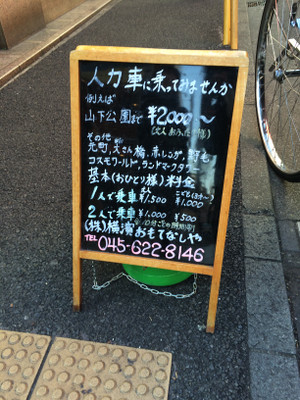 人力車に乗ってみませんか
例えば
山下公園まで ¥2000〜
(大人おふたり様)
その他
元町,大さん橋,赤レンガ,
コスモワールド,ランドマークタワー
基本(おひとり様)料金
1人で乗車 ¥1,500 ¥1,000
2人で乗車 ¥1,000 ¥500
(株)横濱おもてなしや
TEL 045-622-8146